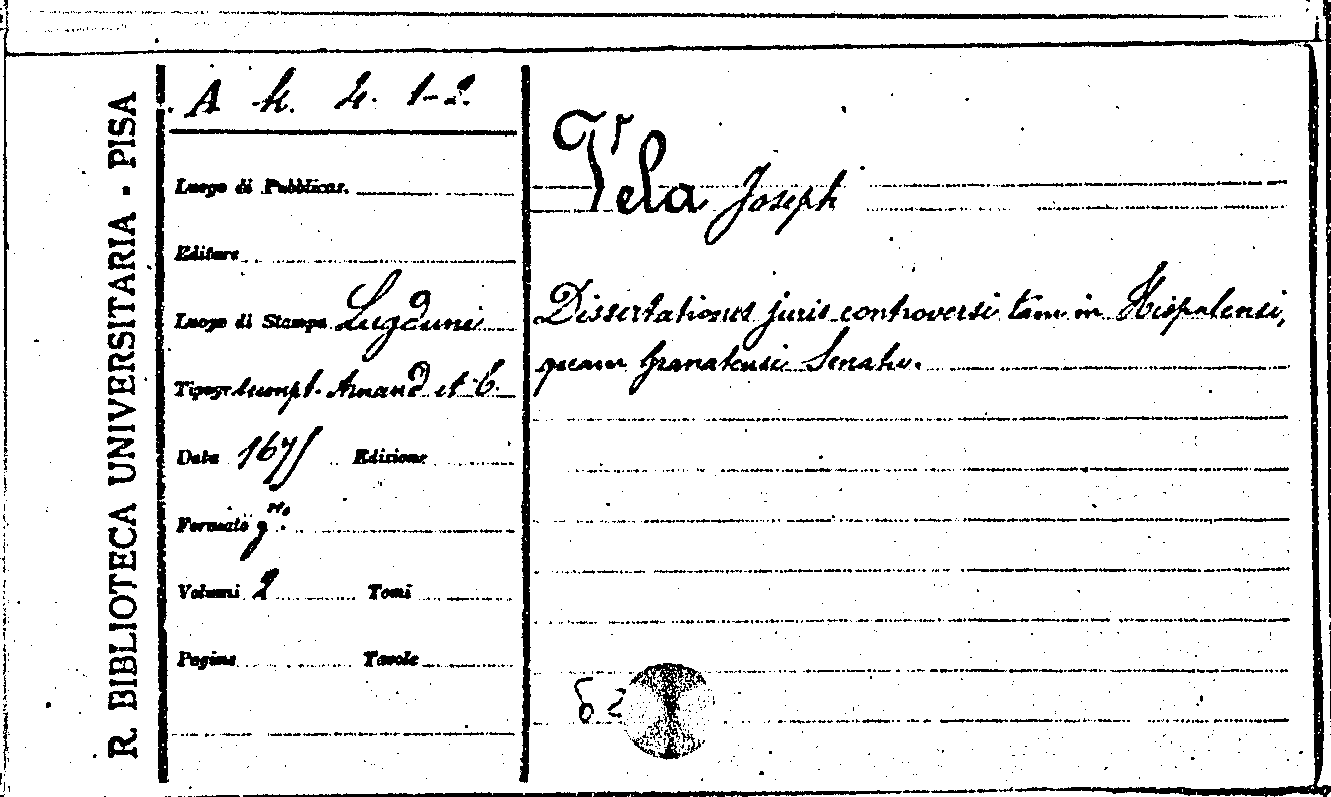 R. BIBLIOTECA UNIVERSITARIA - PISA
A h. 4. 1-2.
Luogo di Pubblicaz.
Editore
Luogo di Stampa Lugduni
Tipogr. sumpt. Arnaud et
Data 1675 Edizione
Formato
Volumi 2 Tomi
Pagine Tavole
Vela Joseph
Dissertationes juris controversi tam in Hispalensi,
quam Granatensi Senatu.